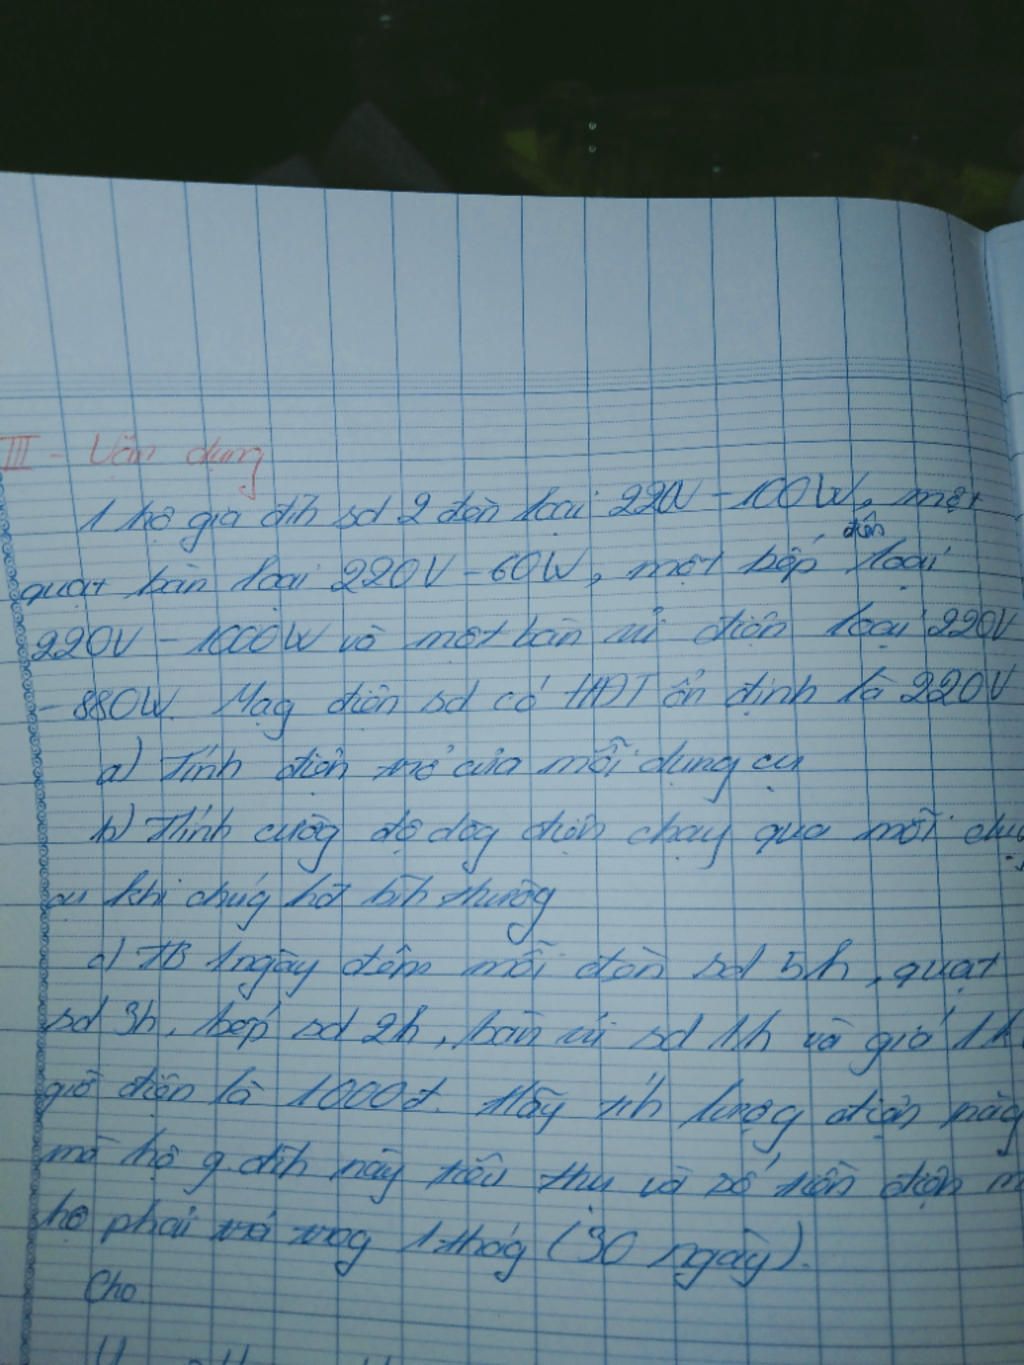 III - Vận dụng
1 hộ gia đìh sd 2 đèn loại 220V - 100W, một
quạt bàn loại 220V - 60W, một bếp điện loại
220V - 1000W và một bàn ủi điện loại 220V
- 880W. Mạg điện sd có HĐT ổn định là 220V
a) Tính điện trở của mỗi dụng cụ
b) Tính cườg độ dòg điện chạy qua mỗi dụg
cụ khi chúg hđ bìh thườg
c) TB 1 ngày đêm mỗi đèn sd 5h, quạt
sd 3h, bếp sd 2h, bàn ủi sd 1h và giá 1k
giờ điện là 1000đ. Hãy tíh lượg điện năg
mà hộ g.đìh này tiêu thụ và số tiền điện m
họ phải trả trog 1 thág (30 ngày).
Cho